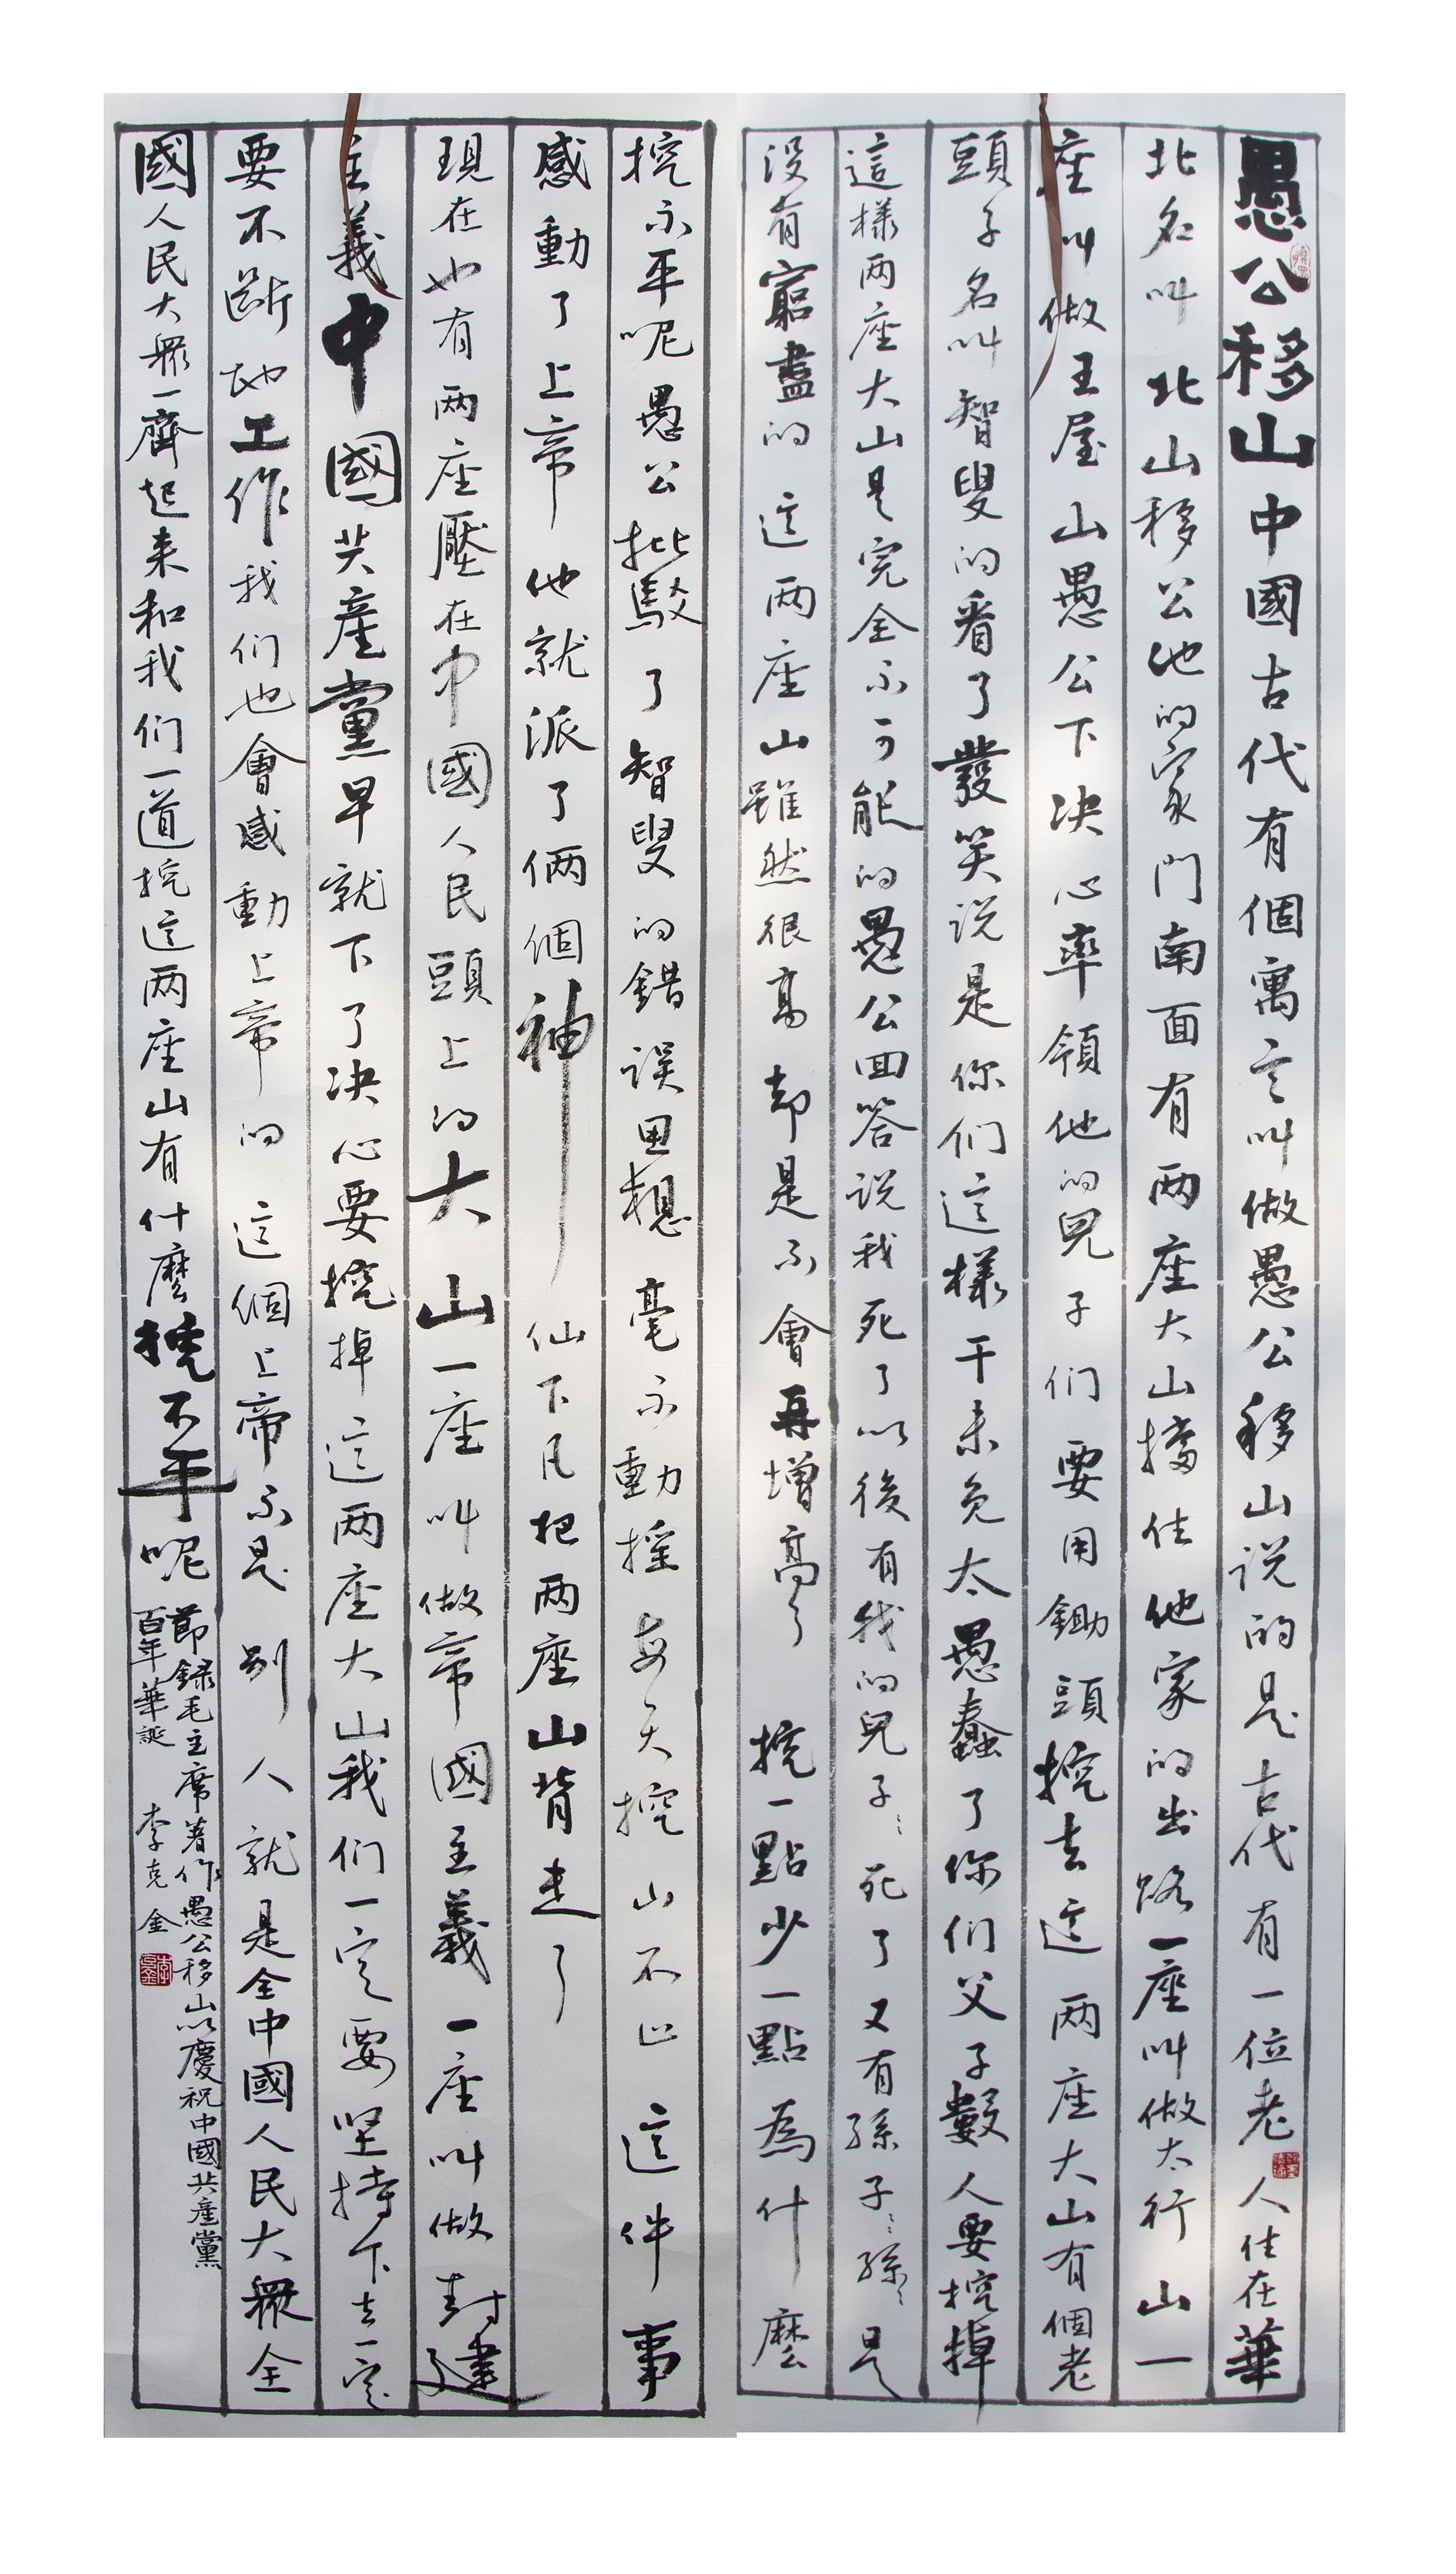 愚公移山中國古代有個寓言叫做愚公移山说的是古代有一位老人住在華
北名叫北山移公他的家門南面有两座大山擋住他家的出路一座叫做太行山一
座叫做王屋山愚公下决心率領他的兒子们要用鋤頭挖去这两座大山有個老
頭子名叫智叟的看了發笑说是你们這樣干未免太愚蠢了你们父子數人要挖掉
這樣两座大山是完全不可能的愚公回答说我死了以後有我的兒子〻死了又有孫子〻孫〻是
没有窮盡的这两座山雖然很高却是不會再增高了挖一點少一點為什麽
挖不平呢愚公批駁了智叟的錯误思想毫不動摇每天挖山不止這件事
感動了上帝他就派了俩個神仙下凡把两座山背走了
現在也有两座壓在中國人民頭上的大山一座叫做帝國主義一座叫做封建
主義中國共産黨早就下了决心要挖掉这两座大山我们一定要坚持下去一定
要不断地工作我们也會感動上帝的這個上帝不是别人就是全中國人民大衆全
國人民大衆一齊起来和我们一道挖这两座山有什麽挖不平呢
節録毛主席著作愚公移山以慶祝中國共産黨
百年華誕 李克金